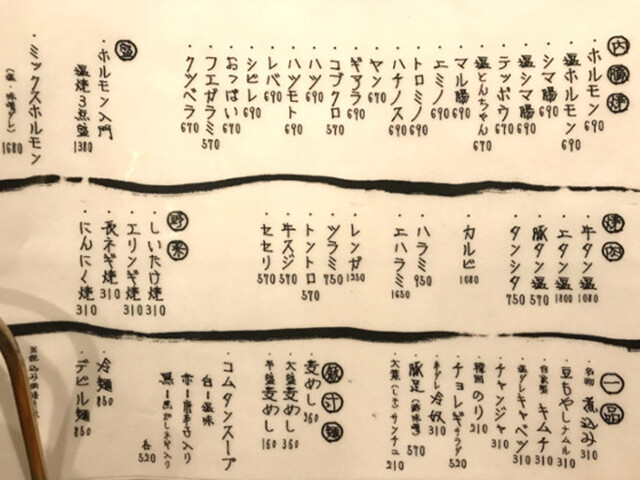 内臓焼
ホルモン 690
塩ホルモン 690
シマ腸 690
塩シマ腸 690
テッポウ 670
塩とんちゃん 670
マル腸 690
エミノ 690
トロミノ 690
ハチノス 690
ヤン 670
ギアラ 690
コブクロ 570
ハツ 690
ハツモト 690
レバ 690
シビレ 690
おっぱい 670
フエガラミ 570
クツベラ 670
盛
ホルモン入門
塩焼3点盛 1380
ミックスホルモン
(塩・味噌ダレ) 1680
焼肉
牛タン塩 1080
エタン塩 1800
豚タン塩 570
タンシタ 750
カルビ 1080
ハラミ 950
エハラミ 1650
レンガ 1350
ツラミ 750
トントロ 570
牛スジ 570
セセリ 570
野菜
しいたけ焼 310
エリンギ焼 310
長ネギ焼 310
にんにく焼 310
一品
名物 煮込み 310
豆もやしナムル 310
自家製 キムチ 310
塩ダレキャベツ 310
チャンジャ 310
韓国のり 210
チョレギサラダ 520
冷奴 310
豚足 570
大葉(しそ)サンチュ 210
飯汁麺
麦めし 260
大盛麦めし 360
半盛麦めし 160
コムタンスープ
白―塩味
赤―唐辛子入り
黒―黒だしネギ入り
各520
冷麺 850
デビル麺 850